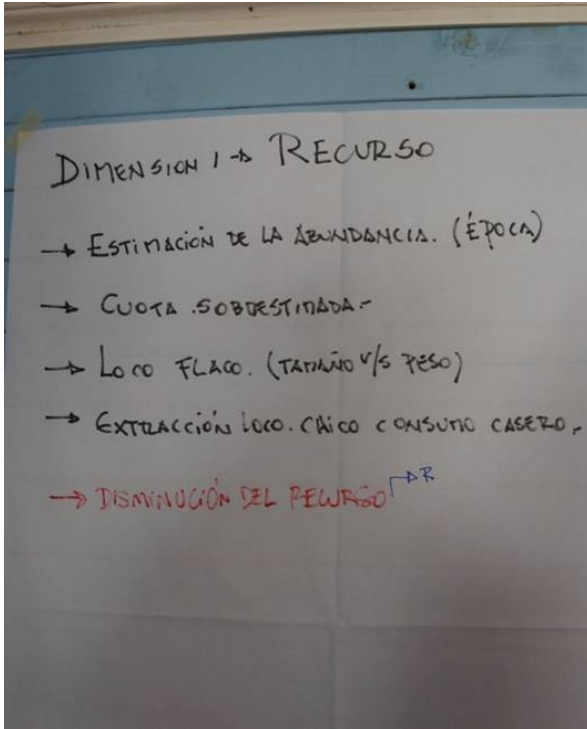 DIMENSION 1 → RECURSO
→ ESTIMACIÓN DE LA ABUNDANCIA. (ÉPOCA)
→ CUOTA SOBRESTIMADA.-
→ LOCO FLACO. (TAMAÑO V/S PESO)
→ EXTRACCIÓN LOCO. CHICO CONSUMO CASERO.-
→ DISMINUCIÓN DEL RECURSO → R